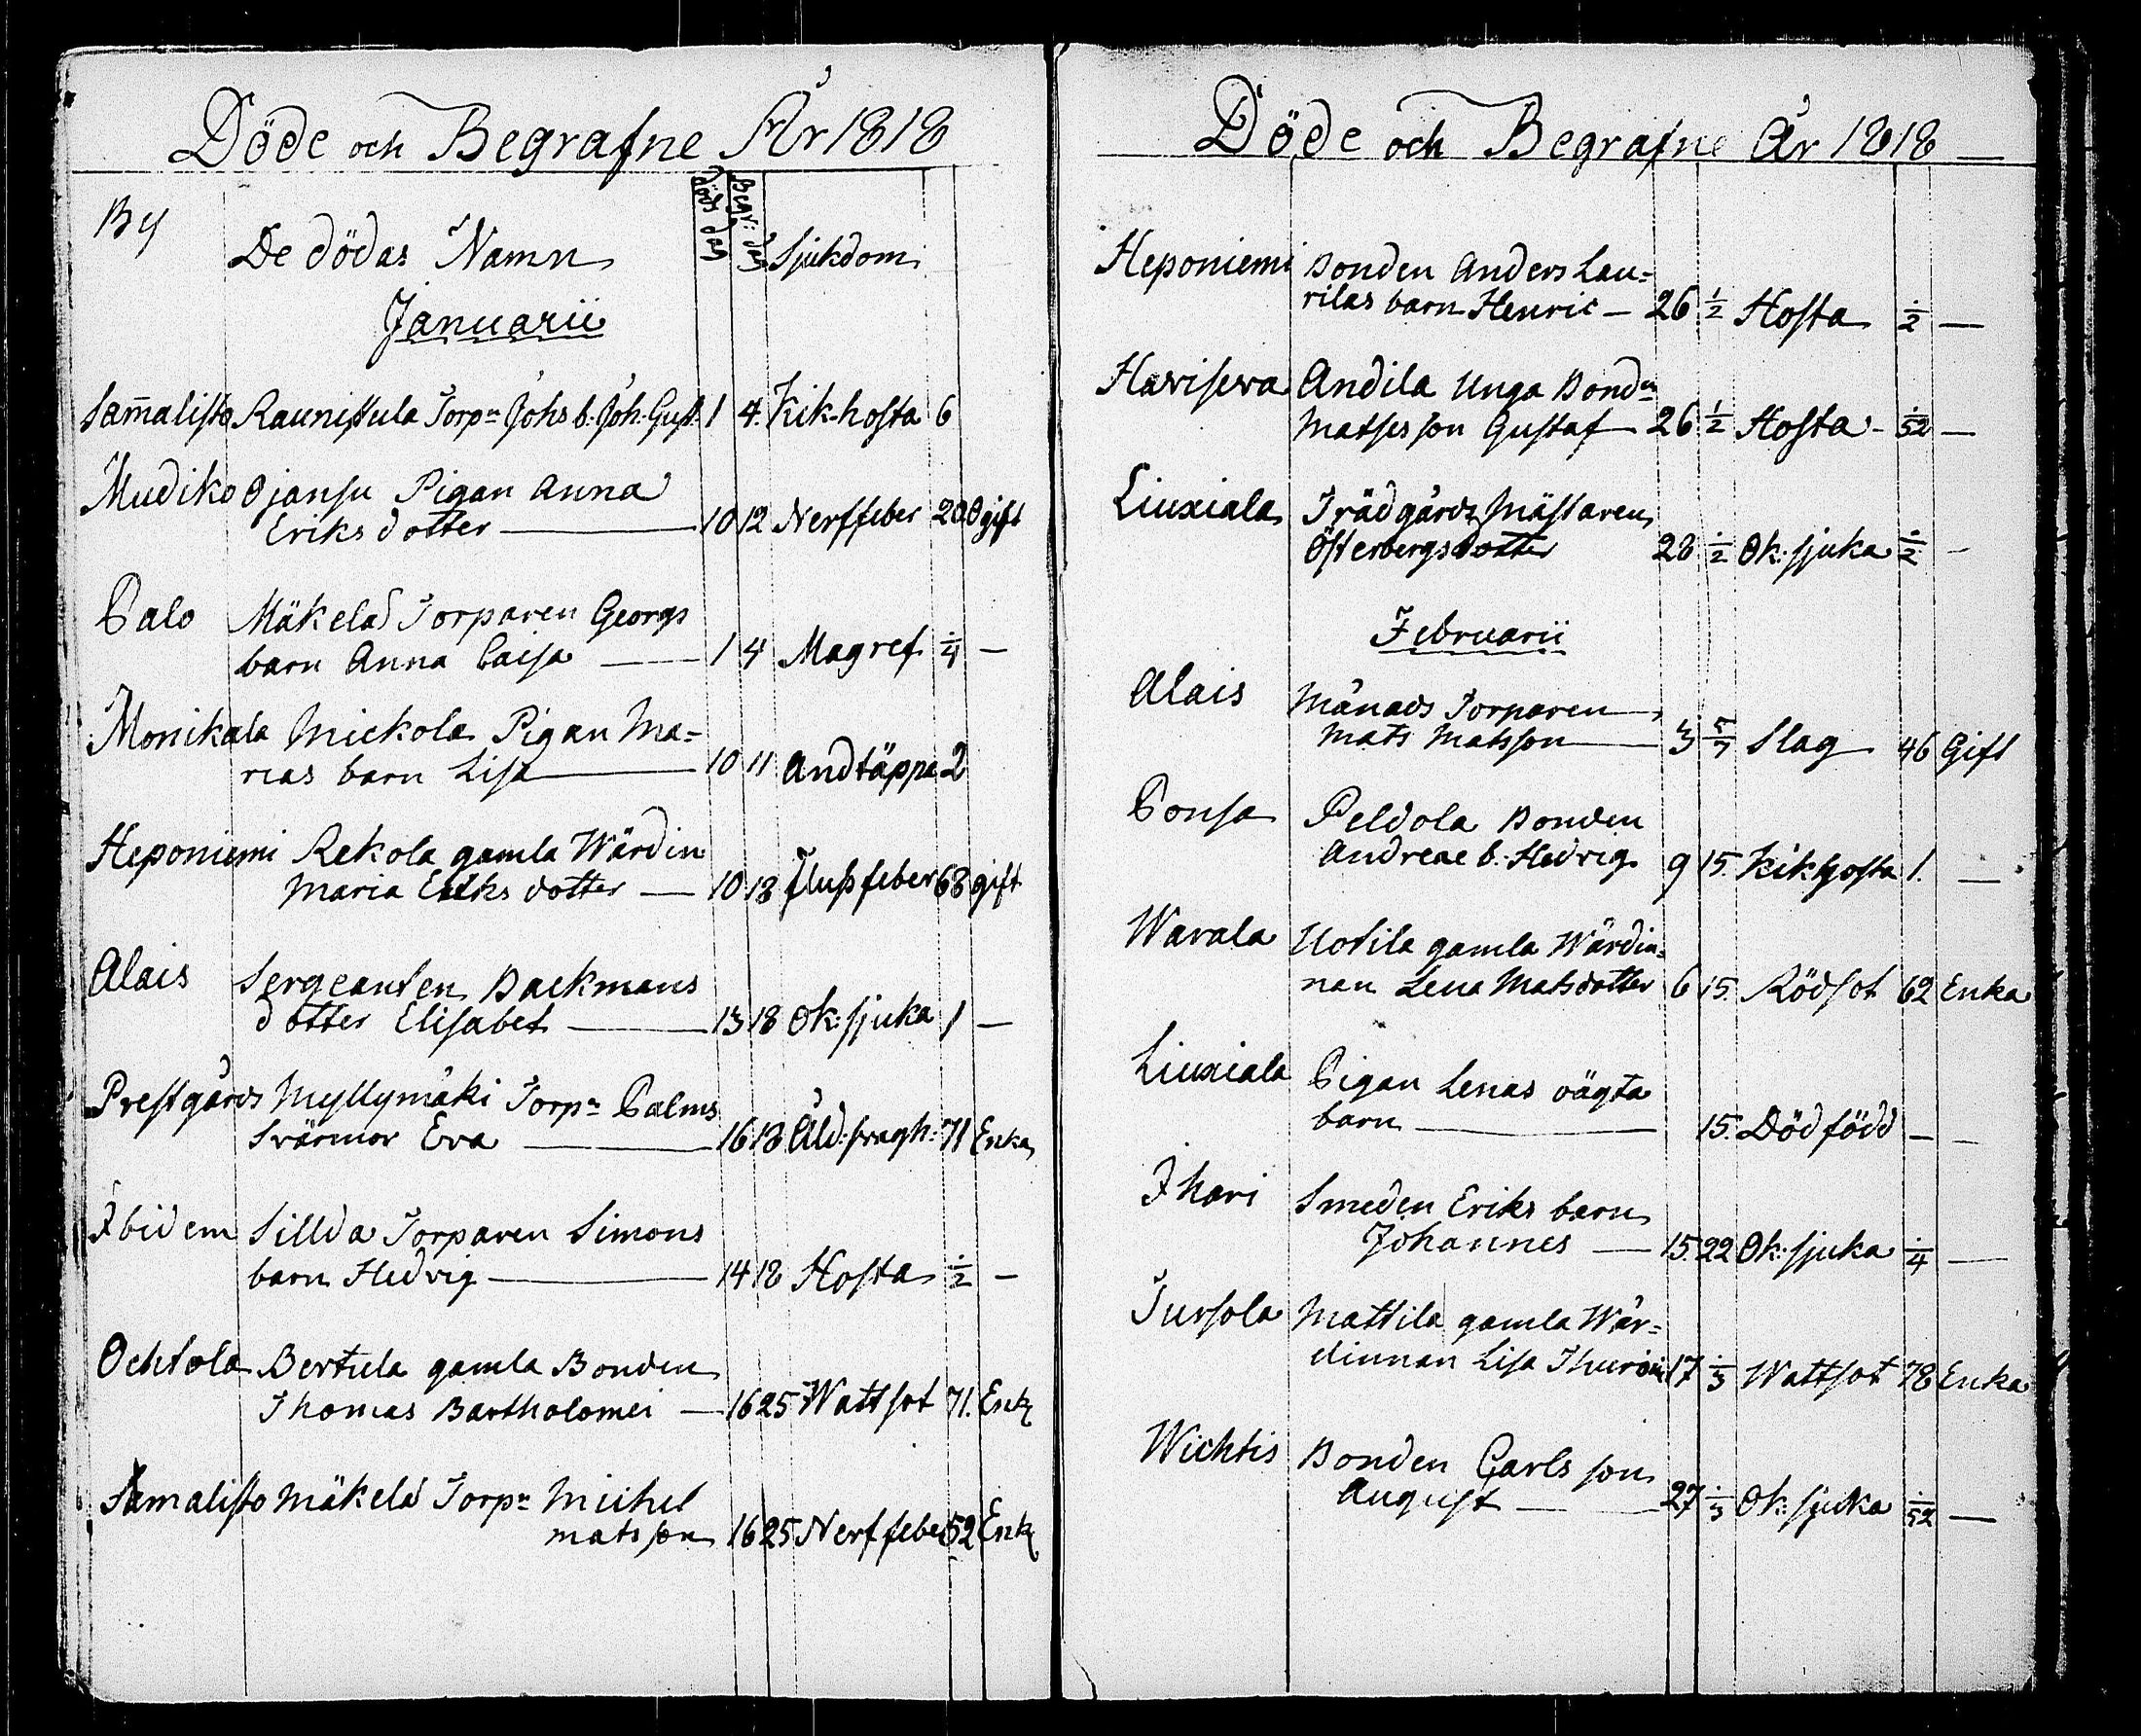 Döde och Begrafne År 1818
By
De dödas Namn
döds dag
Begr: dag
Sjukdom
Januarii
Sam̄alisto Raunistula Torpn Johs b. Joh: Gust: 1 4. Kik-hosta 6
Mudiko Ojansu Pigan Anna
Eriks dotter — 10 12 Nerffeber 20 Ogift
Palo Mäkelä Torparen Georgs
barn Anna Caisa — 1 4 Magref 1/4 —
Monikala Mickola Pigan Ma=
rias barn Lisa — 10 11 Andtäppa 2
Heponiemi Rekola gamla Wärdin
Maria Eriks dotter — 10 18 Flussfeber 68 gift
Alais Sergeanten Backmans
dotter Elisabet — 13 18 Ok: sjuka 1 —
Prestgårds Myllymäki Torpn Palms
Svärmor Eva — 16 18 Åld: svagh: 71 Enka
Ibidem Sillda Torparen Simons
barn Hedvig — 14 18 Hosta 1/2 —
Ochtola Bertula gamla Bonden
Thomas Bartholomei — 16 25 Wattsot 71. Enk
Samalisto Mäkelä Torpn Michel
Matsson 16 25 Nerffeber 52 Enk
Döde och Begrafne År 1818 —
Heponiemi Bonden Anders Lau=
rilas barn Henric — 26 1/2 Hosta 1/2 —
Haviseva Andila Unga Bondn
Matses son Gustaf 26 1/2 Hosta - 1/52 —
Liuxiala Trädgårds Mästaren
Österbergs dotter 28 1/2 Ok: sjuka 1/2 -
Februarii
Alais Månads Torparen
Mats Matsson — 3 5/7 Slag 46 Gift
Ponsa Peldola Bonden
Andreae b. Hedvig 9 15. Kikhosta 1. —
Wavala Uotila gamla Wärdin=
nan Lena Matsdotter 6 15. Rödsot 62 Enka
Liuxiala Pigan Lenas oägta
barn — 15. Död född — -
Ihari Smeden Eriks barn
Johannes — 15. 22 Ok: sjuka 1/4 —
Tursola Mattila gamla Wär=
dinnan Lisa 17 1/3 Wattsot 78 Enka
Wichtis Bonden Carls son
August — 27 1/3 Ok: sjuka 1/52 —